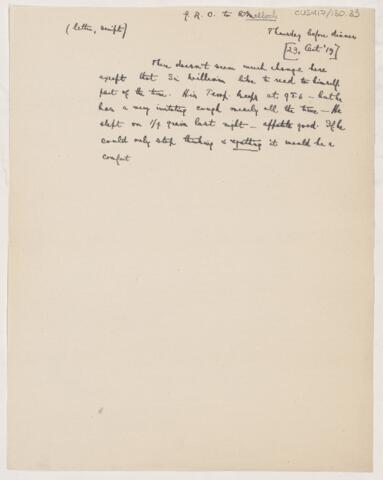 G.R.O. to Malloch CUS417/130.33
(letter, script) Thursday before dinner
[23, Oct '19]
There doesn't seem much change here
except that Sir William likes to read to himself
part of the time. His Temp. keeps at 98.6 – but he
has a very irritating cough nearly all the time – He
slept on 1/4 grain last night – appetite good. If he
could only stop thinking & regretting it would be a
comfort